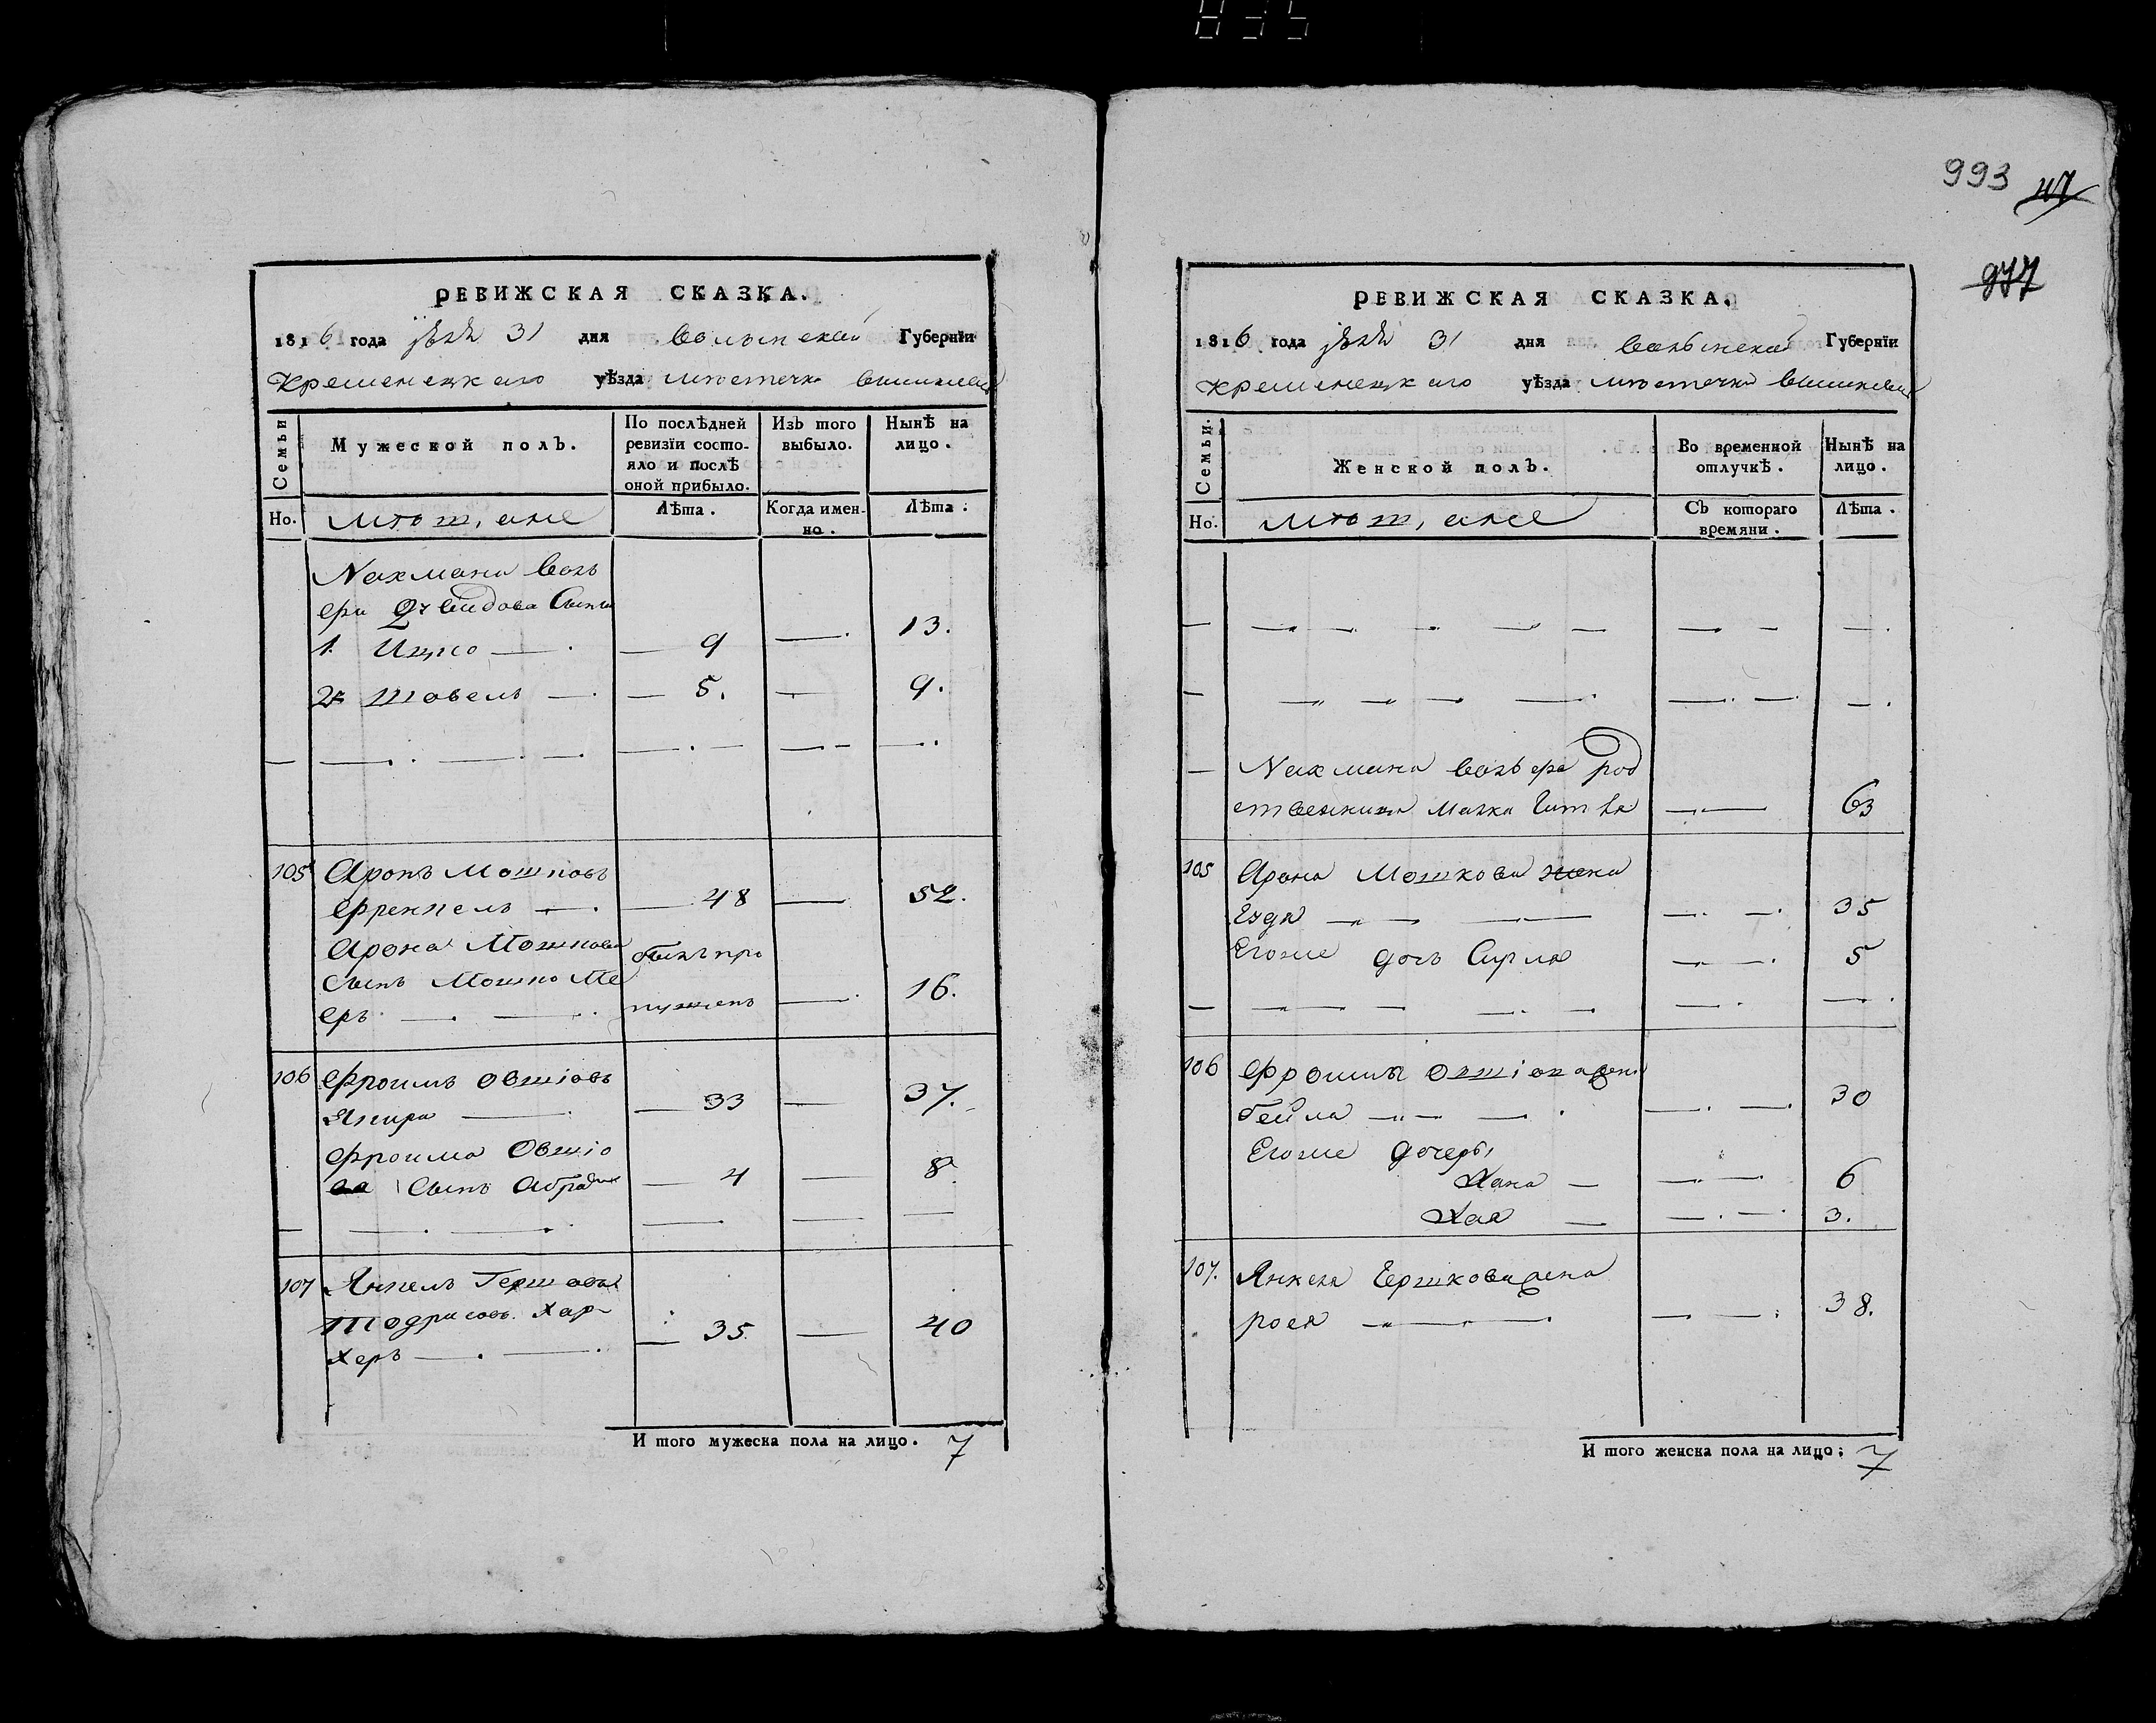 993 117
977
РЕВИЖСКАЯ СКАЗКА.
1816 года 31 дня Волынской Губернїи
Кременецкаго уѣзда мѣстечка Вишневца
Семьи
Мужеской полъ.
По послѣдней ревизїи состо-
яло и послѣ
оной прибыло.
Изъ того
выбыло.
Нынѣ на
лицо.
Но.
Лѣта.
Когда имен-
но.
Лѣта:
НахманаВоль
фа Давидова Сыны
1. Ицко — 9 — 13.
2. Товель — 5. — 9.
105 Аронъ Мошковъ
Френкель — 48 — 52.
Арона Мошкова былъ про
Сынъ Мошко Ме
еръ пущенъ — 16.
106 Фроимъ Овшіовъ
— 33 — 37.
Фроима Овшіо
ва Сынъ — 4 — 8.
107 Янкель Гершовъ
Тодрисовъ. Хар-
херъ — 35 — 40
И того мужеска пола на лицо. 7
РЕВИЖСКАЯ СКАЗКА.
1816 года 31 дня Волынской Губернїи
Кременецкаго уѣзда мѣстечка Вишневца
Семьи.
Женской полъ.
Во временной
отлучкѣ.
Нынѣ на
лицо.
Но.
Съ котораго
времяни.
Лѣта.
Нахмана род
ственника 63
105 Арона Мошкова жена
— 35
Егоже дочь Сирля — 5
106 Фроима Овшіова жена
Бейла — 30
Егоже дочери
Хана — 6
Хая — 3.
107. Янкеля Гершкова жена
— 38.
И того женска пола на лицо: 7